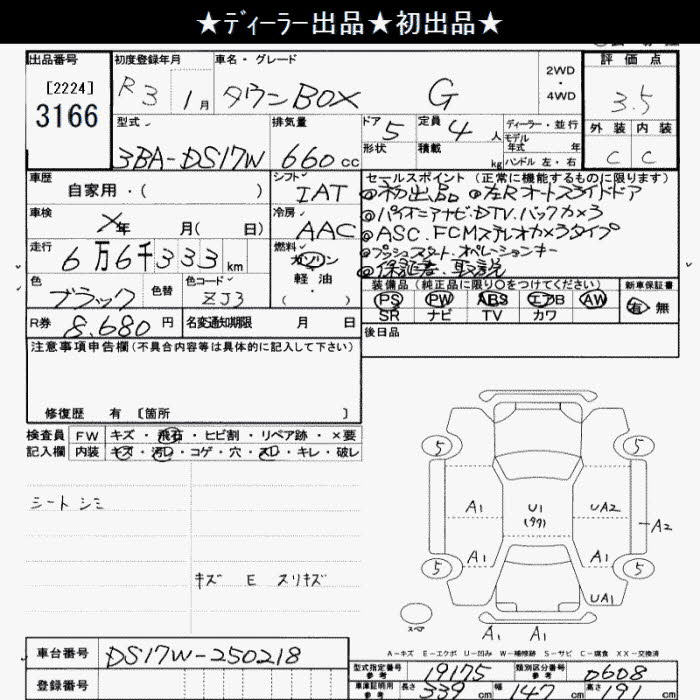 ★ﾃﾞｨｰﾗｰ出品★初出品★
出品番号
[2224]
3166
初度登録年月
R3 1月
車名・グレード
タウンBOX G
2WD
・
4WD
評価点
3.5
型式
3BA-DS17W
排気量
660cc
ドア 5
形状
定員 4人
積載 kg
ディーラー・並行
モデル
年式 年
ハンドル 左・右
外装 内装
C C
車歴
自家用・( )
シフト
IAT
車検
×年 月( 日)
冷房
AAC
走行
6万6千333km
燃料
ガソリン
軽油
( )
色
ブラック
色替
色コード
ZJ3
R券 8.680円
名変通知期限 月 日
セールスポイント (正常に機能するものに限ります)
◎初出品 ◎左Rオートスライドドア
◎パイオニアナビ.DTV.バックカメラ
◎ASC.FCMステレオカメラタイプ
◎プッシュスタート.オペレーションキー
◎保証書.取説
装備品 (純正品に限り○をつけてください)
PS PW ABS エアB AW
SR ナビ TV カワ
新車保証書
有 無
後日品
注意事項申告欄(不具合内容等は具体的に記入して下さい)
修復歴 有 [箇所 ]
検査員 FW キズ・飛石・ヒビ割・リペア跡・×要
記入欄 内装 キズ・汚レ・コゲ・穴・スレ・キレ・破レ
シート シミ
キズ E スリキズ
5 5
A1 U1 UA2
(タワ)
A2
A1 A1
5 5
UA1
スペア
A1 A1
A－キズ E－エクボ U－凹み W－補修跡 S－サビ C－腐食 XX－交換済
車台番号 DS17W-250218
登録番号
型式指定番号
参考
19175
類別区分番号
参考
0608
車庫証明用
参考
長さ 339cm 幅 147cm 高さ 191cm